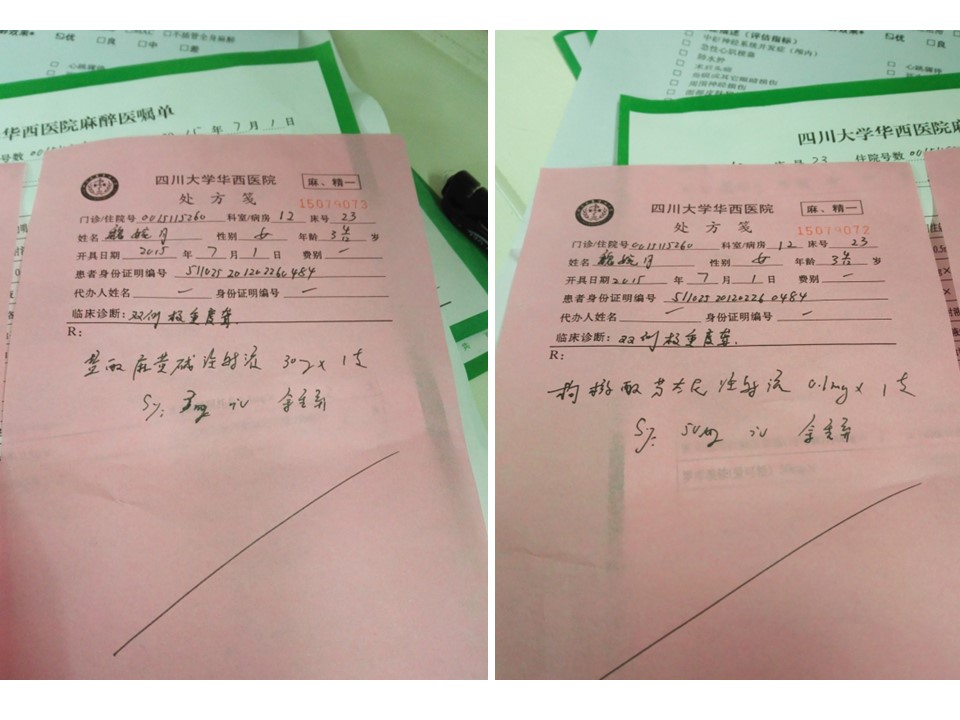 不插管全身麻醉
优 良 中 差
华西医院麻醉医嘱单
15 年 7 月 1 日
四川大学华西医院
麻、精一
处方笺
15079073
门诊/住院号 0015115260 科室/病房 12 床号 23
性别 女 年龄 3 岁
开具日期 2015 年 7 月 1 日 费别 —
患者身份证明编号 511025201202260484
代办人姓名 — 身份证明编号 —
临床诊断: 双侧极重度聋.
R:
盐酸麻黄碱注射液 30mg x 1支
Sij: iv 余重弃
优
(评估指标)
中枢神经系统并发症
急性心肌梗塞
肺水肿
心跳骤停
四川大学华西医院麻
床号 23 住院号数
四川大学华西医院
麻、精一
处方笺
15079072
门诊/住院号 0015115260 科室/病房 12 床号 23
性别 女 年龄 3 岁
开具日期 2015 年 7 月 1 日 费别 —
患者身份证明编号 511025201202260484
代办人姓名 — 身份证明编号 —
临床诊断: 双侧极重度聋.
R:
枸橼酸芬太尼注射液 0.1mg x 1支
iv 余重弃